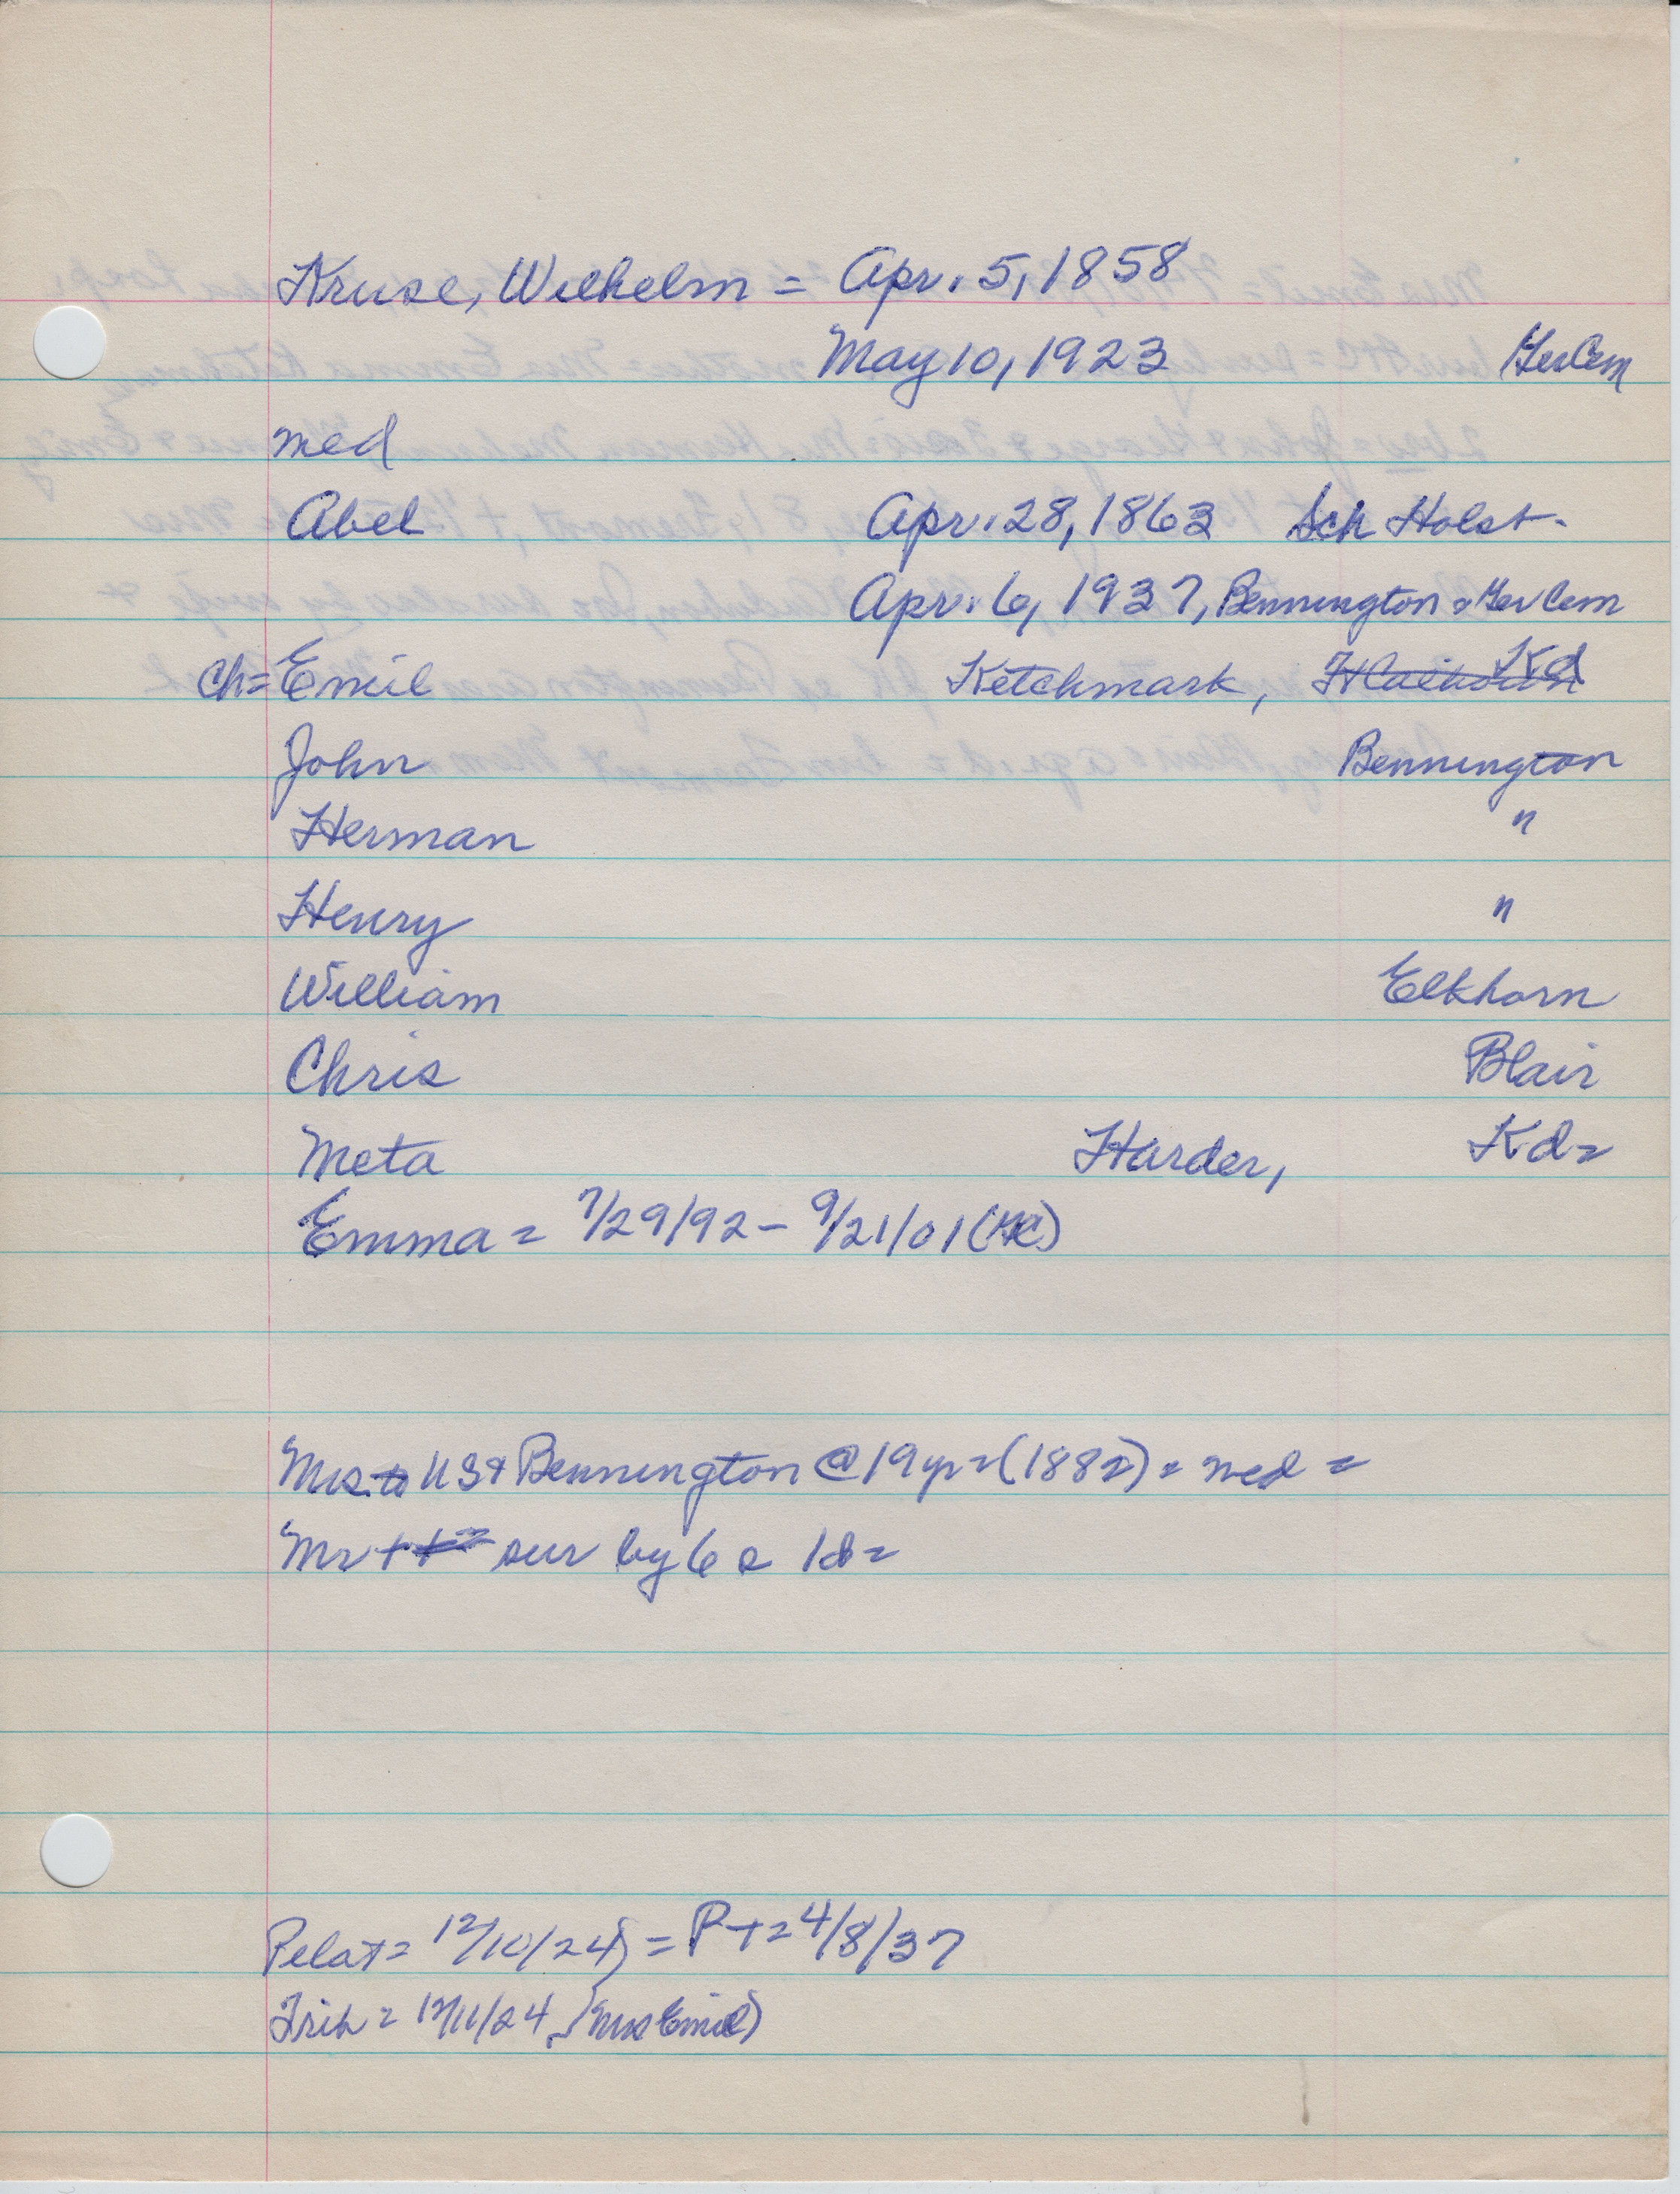 Kruse, Wilhelm = Apr. 5, 1858
May 10, 1923 Ger Cem
med
Abel Apr. 28, 1863 Sch Holst.
Apr. 6, 1937, Bennington = Ger Cem
Ch= Emil Ketchmark, Kd
John Bennington
Herman "
Henry "
William Elkhorn
Chris Blair
Meta Harder, Kd=
Emma = 7/29/92 - 9/21/01 (HC)
Mrs. to US + Bennington @ 19 yr = (1882) = med =
Mr + sur by 6 s 1d =
Pelat = 12/10/24} = P + = 4/8/37
Trib = 12/11/24 } (Mrs Emil)